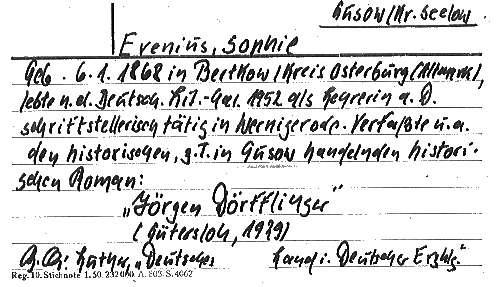 Gusow/Kr. Seelow
Evenius, Sophie
Geb. 6.1.1868 in Bertkow/Kreis Osterburg (Altmark),
lebte n. d. Deutsch. Lit.-Kal. 1952 als Lehrerin a. D.
schriftstellerisch tätig in Wernigerode. Verfaßte u.a.
den historischen, z.T. in Gusow handelnden histori-
schen Roman:
„Jörgen Dörfflinger"
(Gütersloh, 1939)
Luther, „Deutsches Land i. Deutscher Erzhlg"
Reg. 10. Stichnote 1. 50. 232 000. A. 803 S. 4062